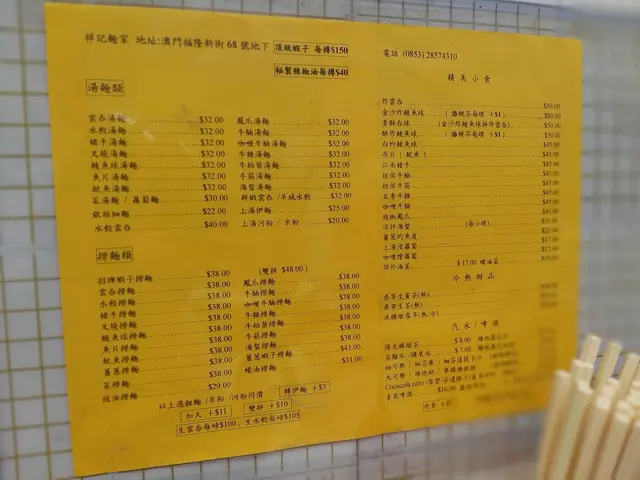 祥記麵家 地址:澳門福隆新街 68 號地下
頂級蝦子 每樽$150
秘製辣椒油每樽$40
湯麵類
雲吞湯麵 $32.00
水餃湯麵 $32.00
豬手湯麵 $32.00
叉燒湯麵 $32.00
鯪魚球湯麵 $32.00
魚片湯麵 $32.00
魷魚湯麵 $32.00
菜湯麵 / 蘿蔔麵 $30.00
銀絲細麵 $22.00
水餃雲吞 $40.00
鳳爪湯麵 $32.00
牛腩湯麵 $32.00
咖喱牛腩湯麵 $32.00
牛雜湯麵 $32.00
牛柏葉湯麵 $32.00
牛筋湯麵 $32.00
海蜇湯麵 $32.00
鮮蝦雲吞 /羊城水餃 $32.00
上湯伊麵 $25.00
上湯河粉 / 米粉 $20.00
撈麵類
(雙拼 $48.00)
招牌蝦子撈麵 $38.00
雲吞撈麵 $38.00
水餃撈麵 $38.00
豬手撈麵 $38.00
叉燒撈麵 $38.00
鯪魚球撈麵 $38.00
魚片撈麵 $38.00
魷魚撈麵 $38.00
薑蔥撈麵 $38.00
菜撈麵 $29.00
豉油撈麵
鳳爪撈麵 $38.00
牛腩撈麵 $38.00
咖喱牛腩撈麵 $38.00
牛雜撈麵 $38.00
牛柏葉撈麵 $38.00
牛筋撈麵 $38.00
海蜇撈麵 $38.00
薑蔥蝦子撈麵 $41.00
蠔油撈麵 $31.00
以上選粗麵 /米粉 /河粉同價
轉伊麵 +$3
加大 +$11
雙拼 +$10
生雲吞每磅$100, 生水餃每磅$105
電話 (0853) 28574310
精美小食
炸雲吞 $50.00
金沙炸鯪魚球 +$1) $50.00
$50.00
酥炸鯪魚球 +$1) $50.00
白灼鯪魚球 $45.00
吊片 ( 魷魚 ) $45.00
江南豬手 $45.00
柱侯牛腩 $45.00
柱侯牛筋 $45.00
五香牛雜 $45.00
咖喱牛腩 $45.00
豉椒鳳爪
涼拌海蜇 (每小碟)
薑蔥灼魚皮
上湯浸蘿蔔 $17.00
咖喱燴蘿蔔
郊外油菜 $17.00 蠔油菜
冷熱甜品
桑寄生蛋茶(熱)
桑寄生茶(熱)
冰糖燉雪耳(熱/冷)
汽水/啤酒
$8.00
$7.00
Cocacola zero
$16.00